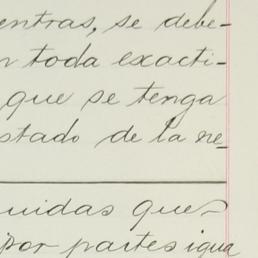 entras, se debe-
n toda exacti-
que se tenga
stado de la re-
uidas que
por partes igua